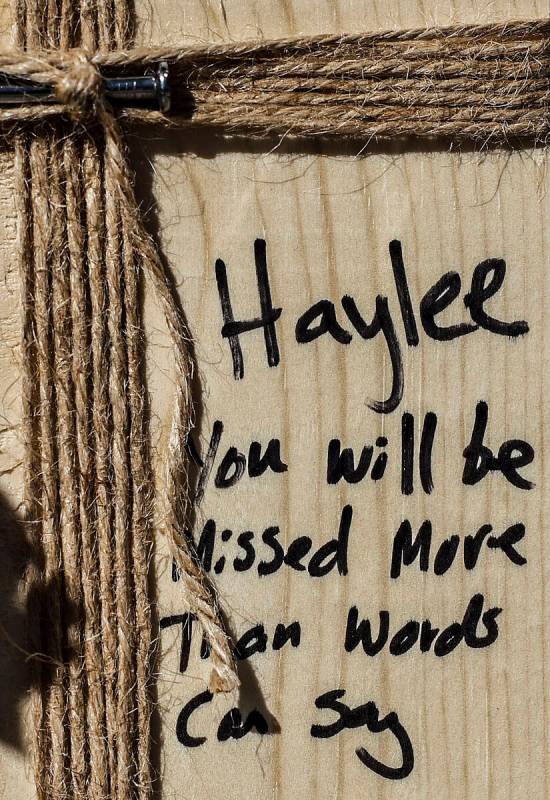 Haylee
You will be
Missed More
Than Words
Can Say